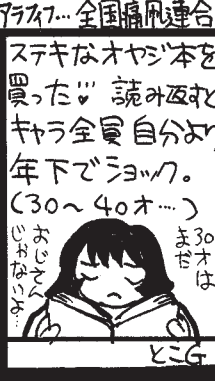 アラフィフ…全国痛凧連合
ステキなオヤジ本を
買った!! 読み返すと
キャラ全員自分より
年下でショック。
(30〜40才…)
30才は
まだ
おじさん
じゃないよ…
とこG